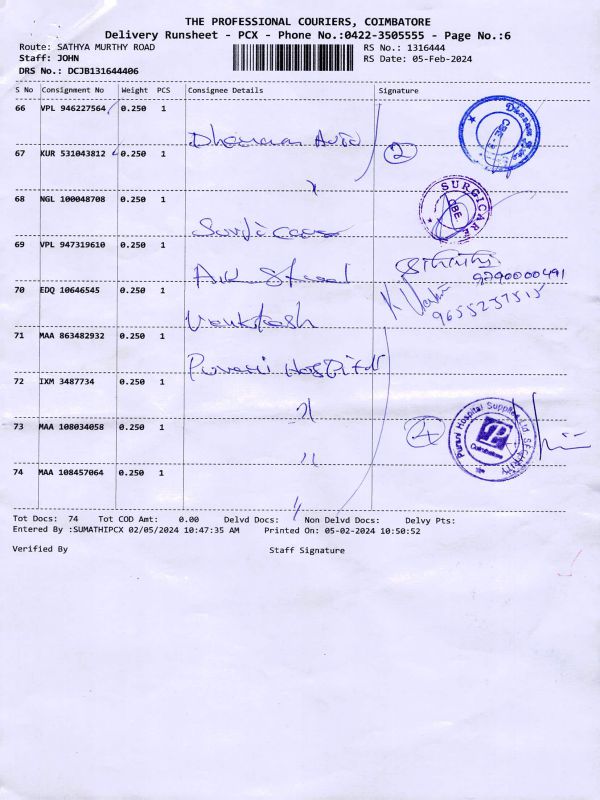 THE PROFESSIONAL COURIERS, COIMBATORE
Delivery Runsheet - PCX - Phone No.:0422-3505555 - Page No.:6
Route: SATHYA MURTHY ROAD RS No.: 1316444
Staff: JOHN RS Date: 05-Feb-2024
DRS No.: DCJB131644406
S No Consignment No Weight PCS Consignee Details Signature
66 VPL 946227564 0.250 1
Dheeran Auto 2
67 KUR 531043812 0.250 1
68 NGL 100048708 0.250 1
SURGICARE CBE
69 VPL 947319610 0.250 1
9790000491
70 EDQ 10646545 0.250 1
Venktesh 9655237515
71 MAA 863482932 0.250 1
Purani Hospital
72 IXM 3487734 0.250 1
73 MAA 108034058 0.250 1
4
Purani Hospital Supplies Ltd SECURITY Coimbatore
74 MAA 108457064 0.250 1
Tot Docs: 74 Tot COD Amt: 0.00 Delvd Docs: Non Delvd Docs: Delvy Pts:
Entered By :SUMATHIPCX 02/05/2024 10:47:35 AM Printed On: 05-02-2024 10:50:52
Verified By Staff Signature